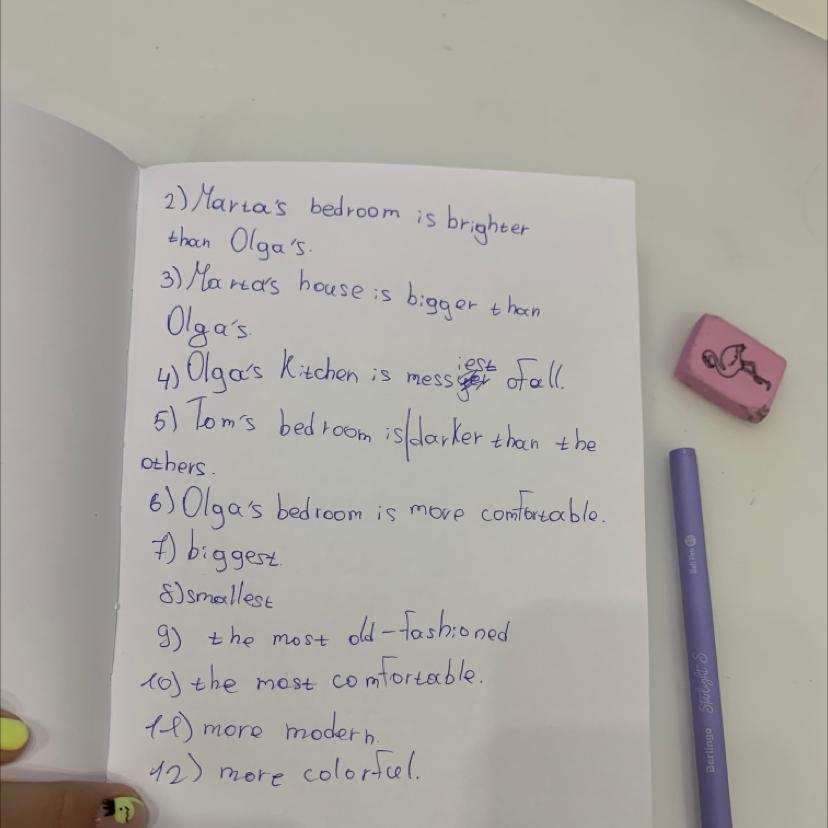 2) Marta's bedroom is brighter
than Olga's.
3) Marta's house is bigger than
Olga's.
4) Olga's Kitchen is messiest of all.
5) Tom's bedroom is darker than the
others.
6) Olga's bedroom is more comfortable.
7) biggest.
8) smallest
9) the most old-fashioned
10) the most comfortable.
11) more modern.
12) more colorful.
Berlingo